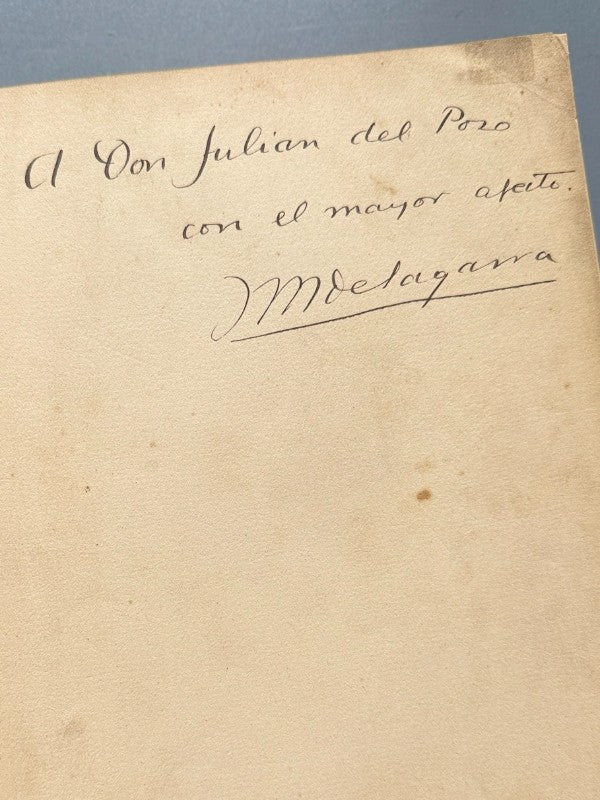 A Don Julian del Pozo
con el mayor afecto.
JMDeSagarra